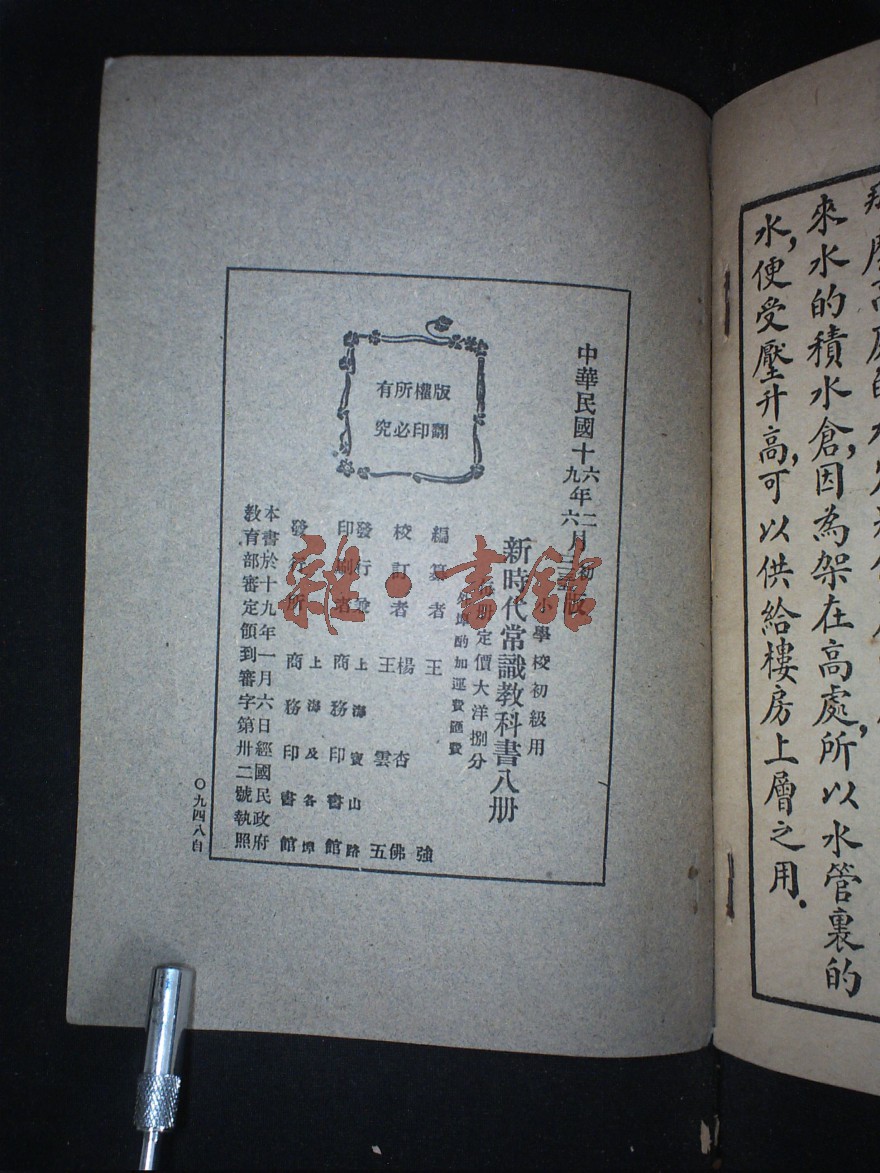 水,便受壓升高,可以供給樓房上層之用.
來水的積水倉,因為架在高處,所以水管裏的
中華民國十六年二月初版
九 六
小學校初級用
新時代常識教科書八册
每册定價大洋捌分
外埠酌加運費匯費
編纂者 王強
校訂者 楊杏佛
王雲五
發行兼 上海寶山路
印刷者 商務印書館
發行所 上海及各埠
商務印書館
本書於十九年一月六日經國民政府
教育部審定領到審字第卅二號執照
版權所有
翻印必究
〇九四八自
雜·書館